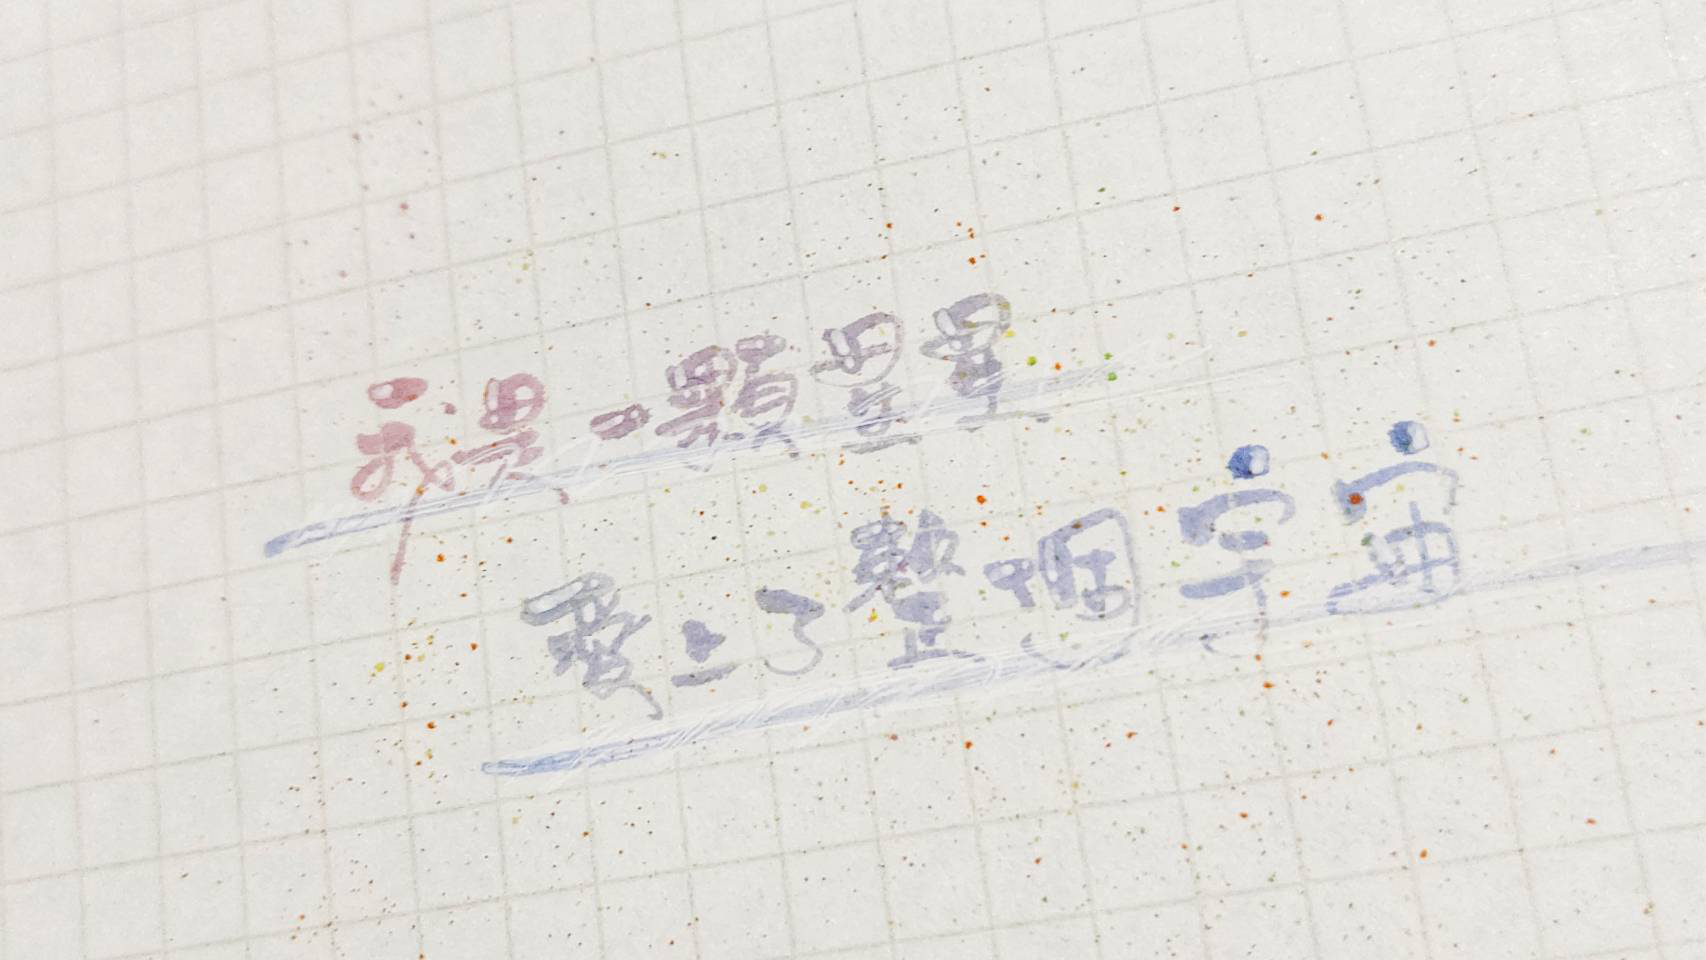 我是一顆星星
愛上了整個宇宙